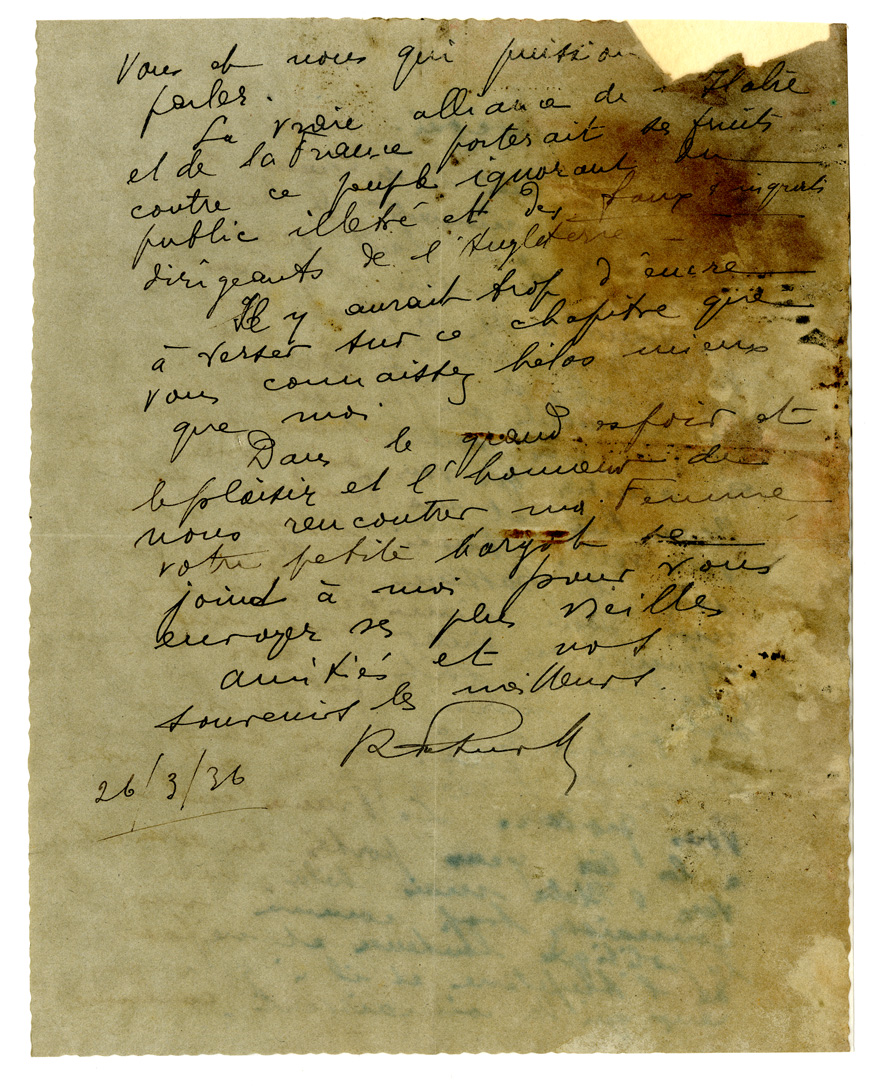 Vous et nous qui puission
parler.
La vraie alliance de l'Italie
et de la France porterait ses fruits
contre ce peuple ignorant du
public illetré et des faux & ingrats
dirigeants de l'Angleterre –
Il y aurait trop d'encre
à verser sur ce chapitre que
vous connaissez hélas mieux
que moi
Dans le grand espoir et
le plaisir et l'honneur de
nous rencontrer ma Femme,
votre petite Margot se
joind à moi pour vous
envoyer ses plus vieilles
amitiés et nos
souvenirs les meilleurs.
26/3/36